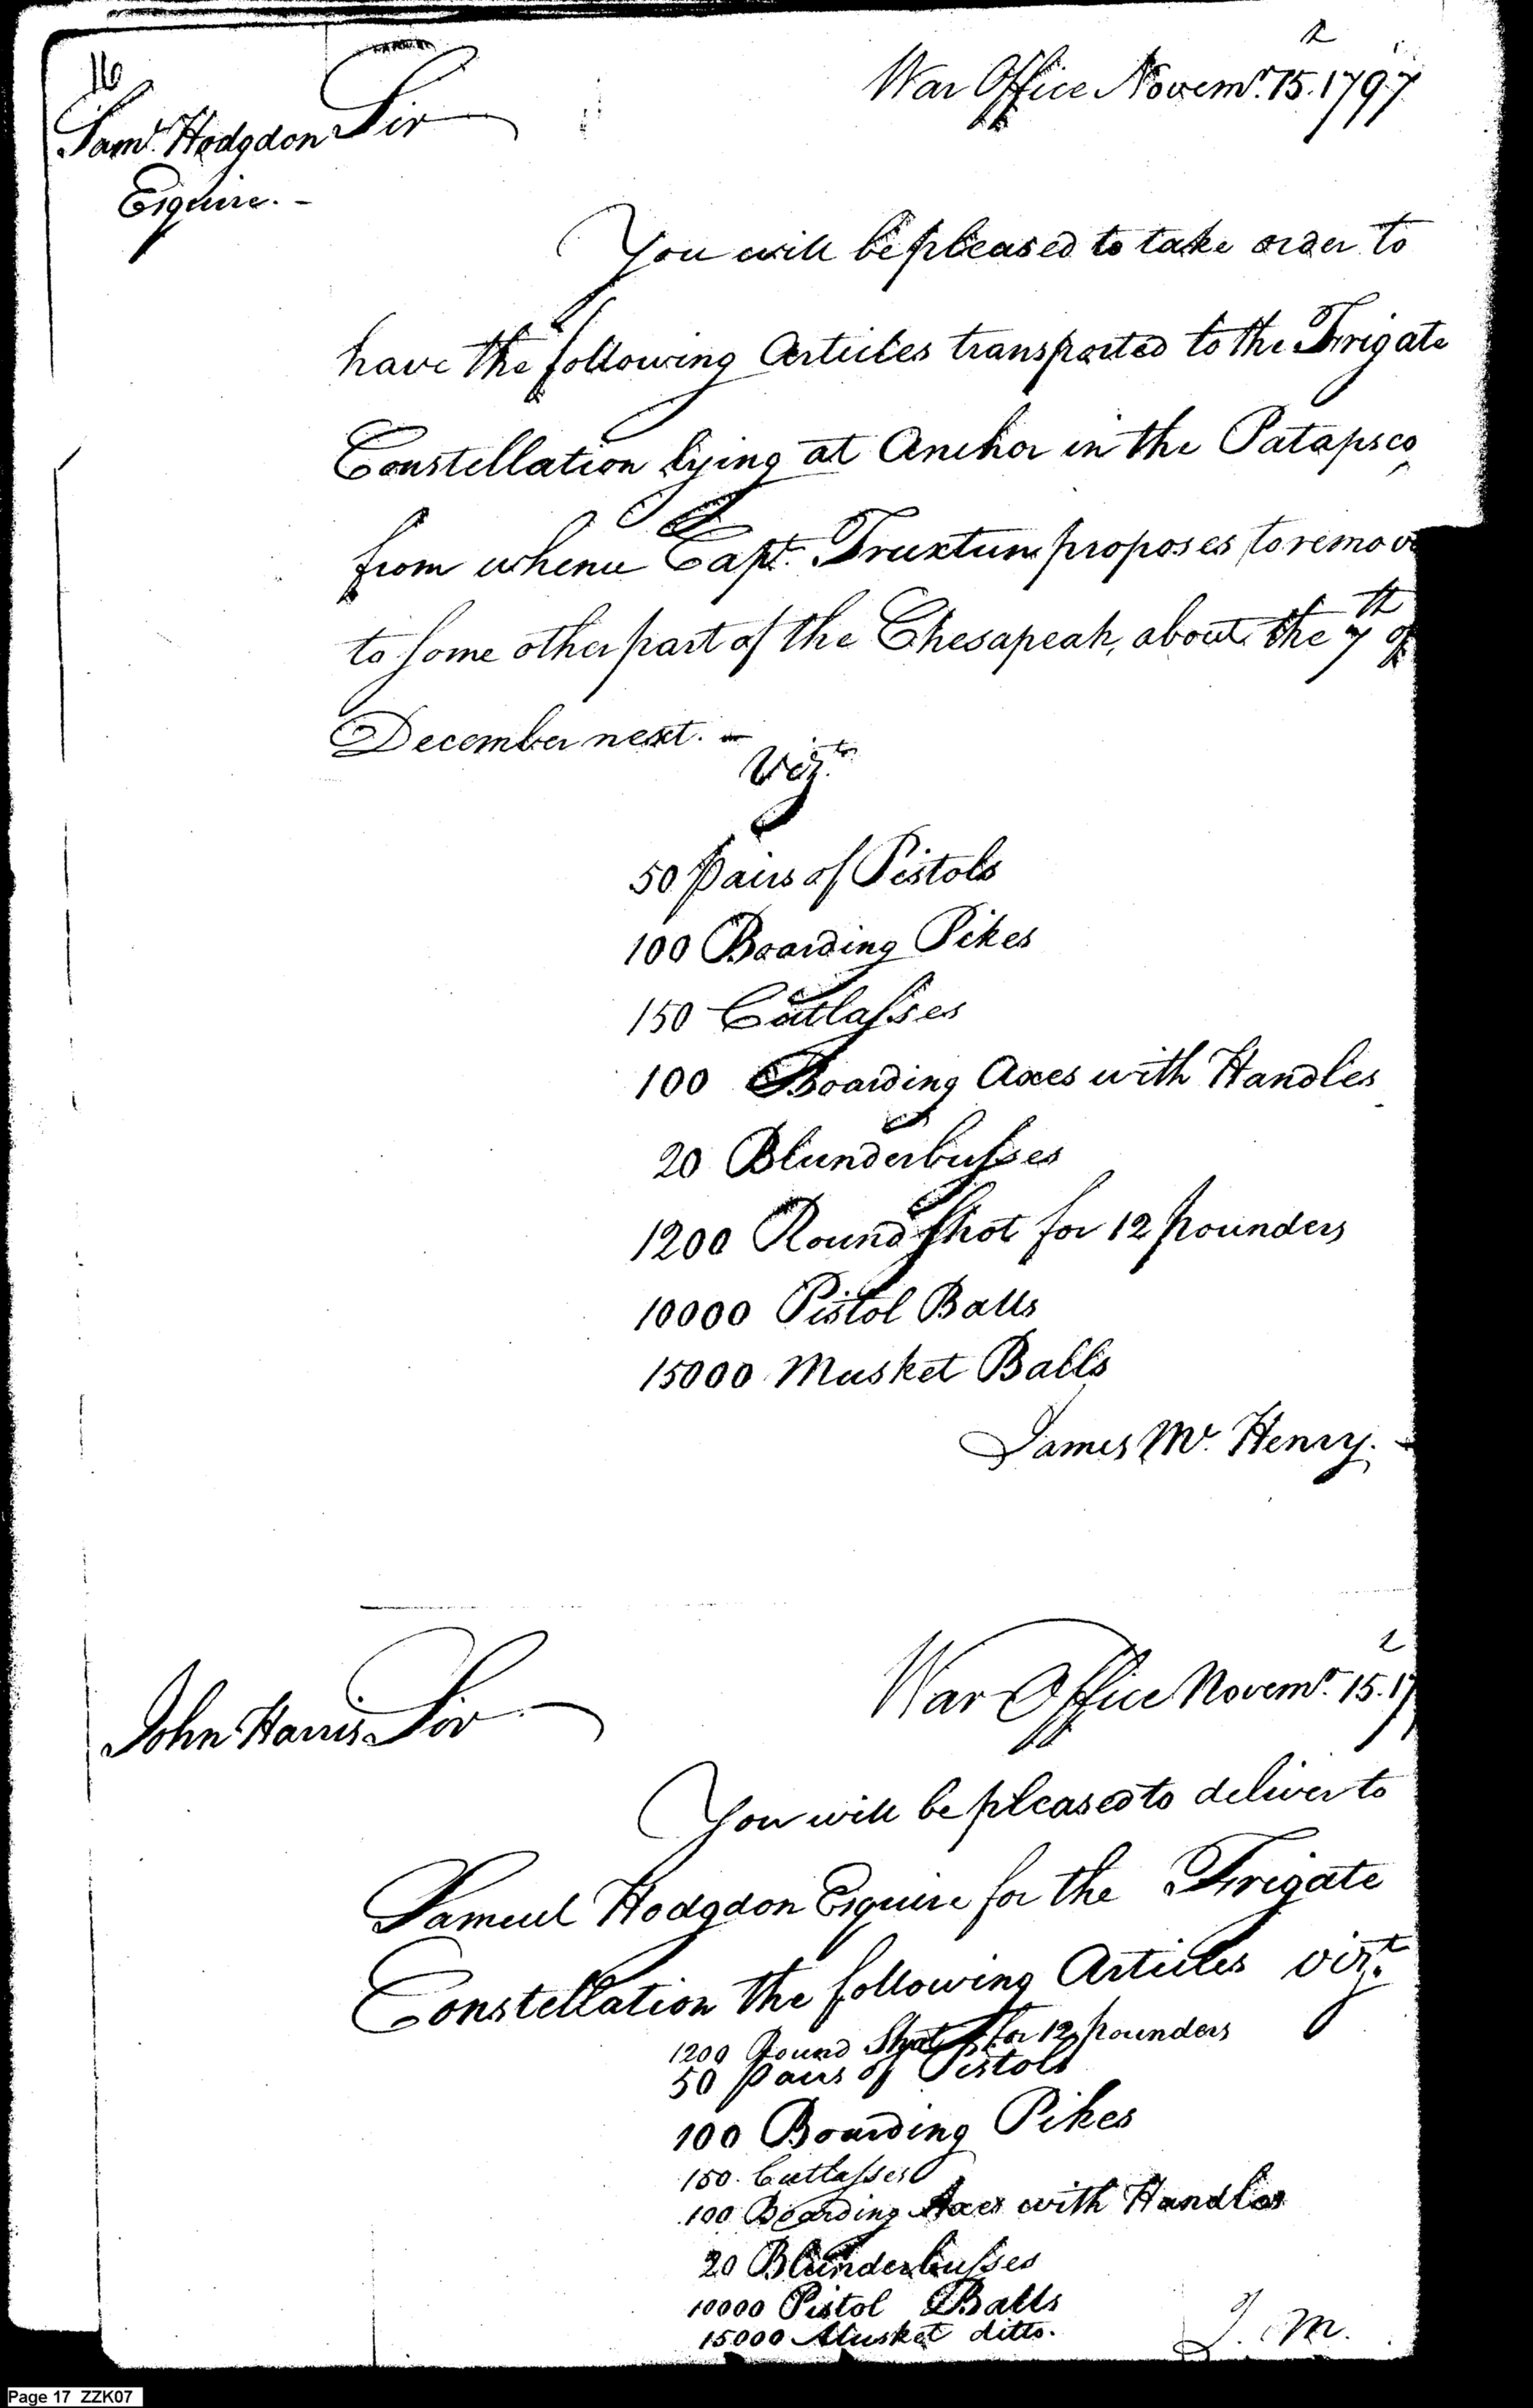 16
War Office Novemr. 15. 1797
Saml. Hodgdon
Esquire. -
Sir
You will be pleased to take order to
have the following Articles transported to the Frigate
Constellation lying at Anchor in the Patapsco
from whence Capt. Truxtun proposes to remove
to some other part of the Chesapeak, about the 7th of
December next. -
Vizt.
50 pairs of Pistols
100 Boarding Pikes
150 Cutlasses
100 Boarding Axes with Handles
20 Blunderbusses
1200 Round Shot for 12 pounders
10000 Pistol Balls
15000 Musket Balls
James Mc. Henry. -
War Office Novemr. 15. 17
John Harris Sir
You will be pleased to deliver to
Samuel Hodgdon Esquire for the Frigate
Constellation the following Articles vizt.
1200 Round Shot for 12 pounders
50 pairs of Pistols
100 Boarding Pikes
150. Cutlasses
100 Boarding Axes with Handles
20 Blunderbusses
10000 Pistol Balls
15000 Musket ditto.
J. M.
Page 17 ZZK07